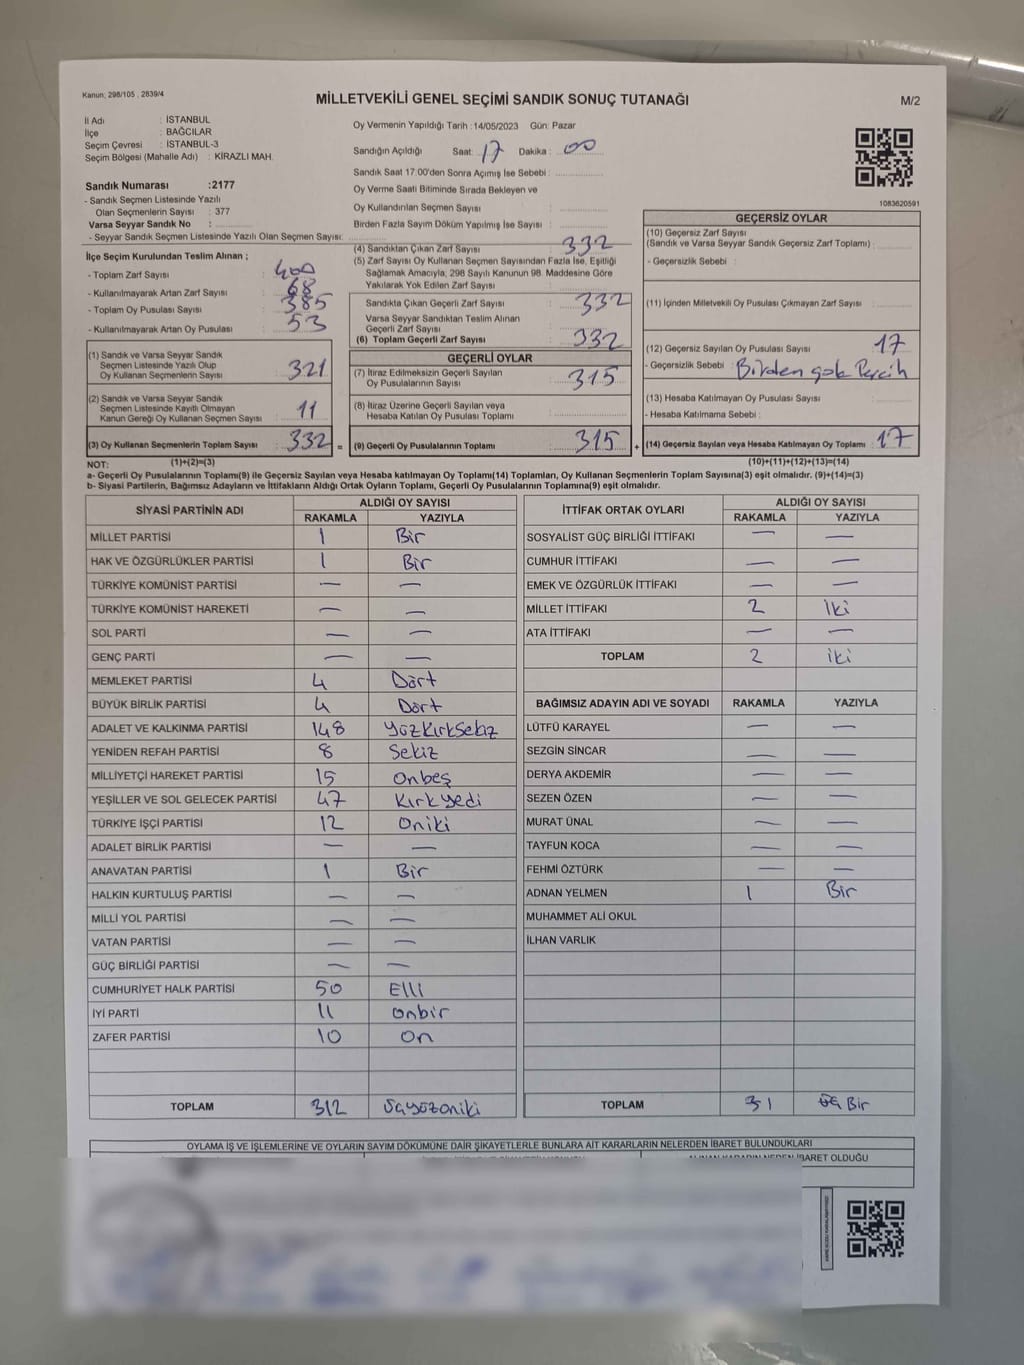 Kanun; 298/105 , 2839/4
MİLLETVEKİLİ GENEL SEÇİMİ SANDIK SONUÇ TUTANAĞI
M/2
İl Adı : İSTANBUL
İlçe : BAĞCILAR
Seçim Çevresi : İSTANBUL-3
Seçim Bölgesi (Mahalle Adı) : KİRAZLI MAH.
Sandık Numarası :2177
- Sandık Seçmen Listesinde Yazılı
Olan Seçmenlerin Sayısı : 377
Varsa Seyyar Sandık No :
- Seyyar Sandık Seçmen Listesinde Yazılı Olan Seçmen Sayısı:
Oy Vermenin Yapıldığı Tarih :14/05/2023 Gün: Pazar
Sandığın Açıldığı Saat: 17 Dakika : 00
Sandık Saat 17.00'den Sonra Açımış İse Sebebi :
Oy Verme Saati Bitiminde Sırada Bekleyen ve
Oy Kullandırılan Seçmen Sayısı :
Birden Fazla Sayım Döküm Yapılmış İse Sayısı :
1083620591
İlçe Seçim Kurulundan Teslim Alınan ;
- Toplam Zarf Sayısı : 400
- Kullanılmayarak Artan Zarf Sayısı : 68
- Toplam Oy Pusulası Sayısı : 385
- Kullanılmayarak Artan Oy Pusulası : 53
(1) Sandık ve Varsa Seyyar Sandık
Seçmen Listesinde Yazılı Olup
Oy Kullanan Seçmenlerin Sayısı : 321
(2) Sandık ve Varsa Seyyar Sandık
Seçmen Listesinde Kayıtlı Olmayan
Kanun Gereği Oy Kullanan Seçmen Sayısı : 11
(3) Oy Kullanan Seçmenlerin Toplam Sayısı : 332 =
(4) Sandıktan Çıkan Zarf Sayısı : 332
(5) Zarf Sayısı Oy Kullanan Seçmen Sayısından Fazla İse, Eşitliği
Sağlamak Amacıyla, 298 Sayılı Kanunun 98. Maddesine Göre
Yakılarak Yok Edilen Zarf Sayısı :
Sandıkta Çıkan Geçerli Zarf Sayısı : 332
Varsa Seyyar Sandıktan Teslim Alınan
Geçerli Zarf Sayısı :
(6) Toplam Geçerli Zarf Sayısı : 332
GEÇERLİ OYLAR
(7) İtiraz Edilmeksizin Geçerli Sayılan
Oy Pusulalarının Sayısı : 315
(8) İtiraz Üzerine Geçerli Sayılan veya
Hesaba Katılan Oy Pusulası Toplamı :
(9) Geçerli Oy Pusulalarının Toplamı : 315 +
GEÇERSİZ OYLAR
(10) Geçersiz Zarf Sayısı
(Sandık ve Varsa Seyyar Sandık Geçersiz Zarf Toplamı) :
- Geçersizlik Sebebi :
(11) İçinden Milletvekili Oy Pusulası Çıkmayan Zarf Sayısı :
(12) Geçersiz Sayılan Oy Pusulası Sayısı : 17
- Geçersizlik Sebebi : Birden çok Tercih
(13) Hesaba Katılmayan Oy Pusulası Sayısı :
- Hesaba Katılmama Sebebi :
(14) Geçersiz Sayılan veya Hesaba Katılmayan Oy Toplamı : 17
NOT: (1)+(2)=(3) (10)+(11)+(12)+(13)=(14)
a- Geçerli Oy Pusulalarının Toplamı(9) ile Geçersiz Sayılan veya Hesaba katılmayan Oy Toplamı(14) Toplamları, Oy Kullanan Seçmenlerin Toplam Sayısına(3) eşit olmalıdır. (9)+(14)=(3)
b- Siyasi Partilerin, Bağımsız Adayların ve İttifakların Aldığı Ortak Oyların Toplamı, Geçerli Oy Pusulalarının Toplamına(9) eşit olmalıdır.
SİYASİ PARTİNİN ADI ALDIĞI OY SAYISI
RAKAMLA YAZIYLA
MİLLET PARTİSİ 1 Bir
HAK VE ÖZGÜRLÜKLER PARTİSİ 1 Bir
TÜRKİYE KOMÜNİST PARTİSİ — —
TÜRKİYE KOMÜNİST HAREKETİ — —
SOL PARTİ — —
GENÇ PARTİ — —
MEMLEKET PARTİSİ 4 Dört
BÜYÜK BİRLİK PARTİSİ 4 Dört
ADALET VE KALKINMA PARTİSİ 148 YüzKırkSekiz
YENİDEN REFAH PARTİSİ 8 Sekiz
MİLLİYETÇİ HAREKET PARTİSİ 15 Onbeş
YEŞİLLER VE SOL GELECEK PARTİSİ 47 Kırkyedi
TÜRKİYE İŞÇİ PARTİSİ 12 Oniki
ADALET BİRLİK PARTİSİ — —
ANAVATAN PARTİSİ 1 Bir
HALKIN KURTULUŞ PARTİSİ — —
MİLLİ YOL PARTİSİ — —
VATAN PARTİSİ — —
GÜÇ BİRLİĞİ PARTİSİ — —
CUMHURİYET HALK PARTİSİ 50 Elli
İYİ PARTİ 11 Onbir
ZAFER PARTİSİ 10 On
TOPLAM 312 Üçyüzoniki
İTTİFAK ORTAK OYLARI ALDIĞI OY SAYISI
RAKAMLA YAZIYLA
SOSYALİST GÜÇ BİRLİĞİ İTTİFAKI — —
CUMHUR İTTİFAKI — —
EMEK VE ÖZGÜRLÜK İTTİFAKI — —
MİLLET İTTİFAKI 2 İki
ATA İTTİFAKI — —
TOPLAM 2 iki
BAĞIMSIZ ADAYIN ADI VE SOYADI RAKAMLA YAZIYLA
LÜTFÜ KARAYEL — —
SEZGİN SİNCAR — —
DERYA AKDEMİR — —
SEZEN ÖZEN — —
MURAT ÜNAL — —
TAYFUN KOCA — —
FEHMİ ÖZTÜRK — —
ADNAN YELMEN 1 Bir
MUHAMMET ALİ OKUL
İLHAN VARLIK
TOPLAM 1 Bir
OYLAMA İŞ VE İŞLEMLERİNE VE OYLARIN SAYIM DÖKÜMÜNE DAİR ŞİKAYETLERLE BUNLARA AİT KARARLARIN NELERDEN İBARET BULUNDUKLARI
İBARET OLDUĞU